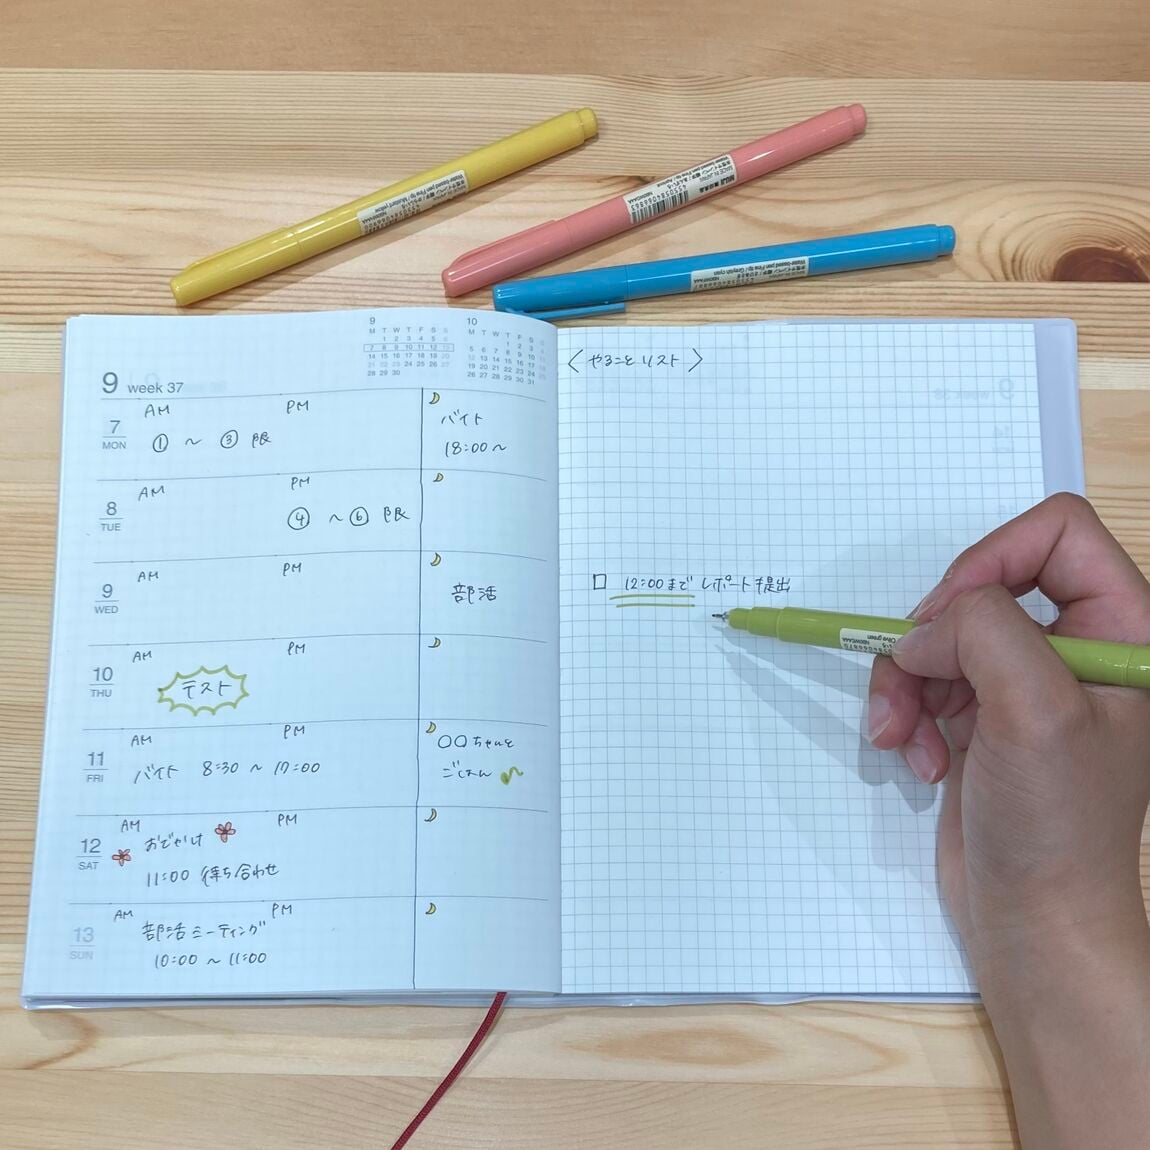 9 week 37
9
M T W T F S S
1 2 3 4 5 6
7 8 9 10 11 12 13
14 15 16 17 18 19 20
21 22 23 24 25 26 27
28 29 30
10
M T W T F S S
1 2 3 4
5 6 7 8 9 10 11
12 13 14 15 16 17 18
19 20 21 22 23 24 25
26 27 28 29 30 31
7
MON
AM
PM
① ~ ③ 限
バイト
18:00~
8
TUE
AM
PM
④ ~ ⑥ 限
9
WED
AM
PM
部活
10
THU
AM
PM
テスト
11
FRI
AM
PM
バイト 8:30 ~ 17:00
〇〇ちゃんと
ごはん
12
SAT
AM
PM
おでかけ
11:00 待ち合わせ
13
SUN
AM
PM
部活ミーティング
10:00 ~ 11:00
〈やることリスト〉
□ 12:00まで レポート提出
MUJI 無印良品
MADE IN JAPAN
Water-based pen Fine tip
Mustard yellow
Water-based pen Fine tip
4550584066863
Water-based pen Fine tip / Greyish cyan
Olive green